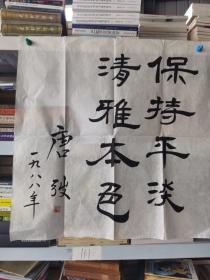 保持平淡
清雅本色
唐弢
一九八八年